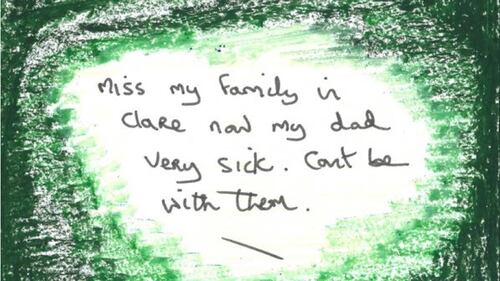 Miss my family in
Clare now my dad
very sick. Cant be
with them.